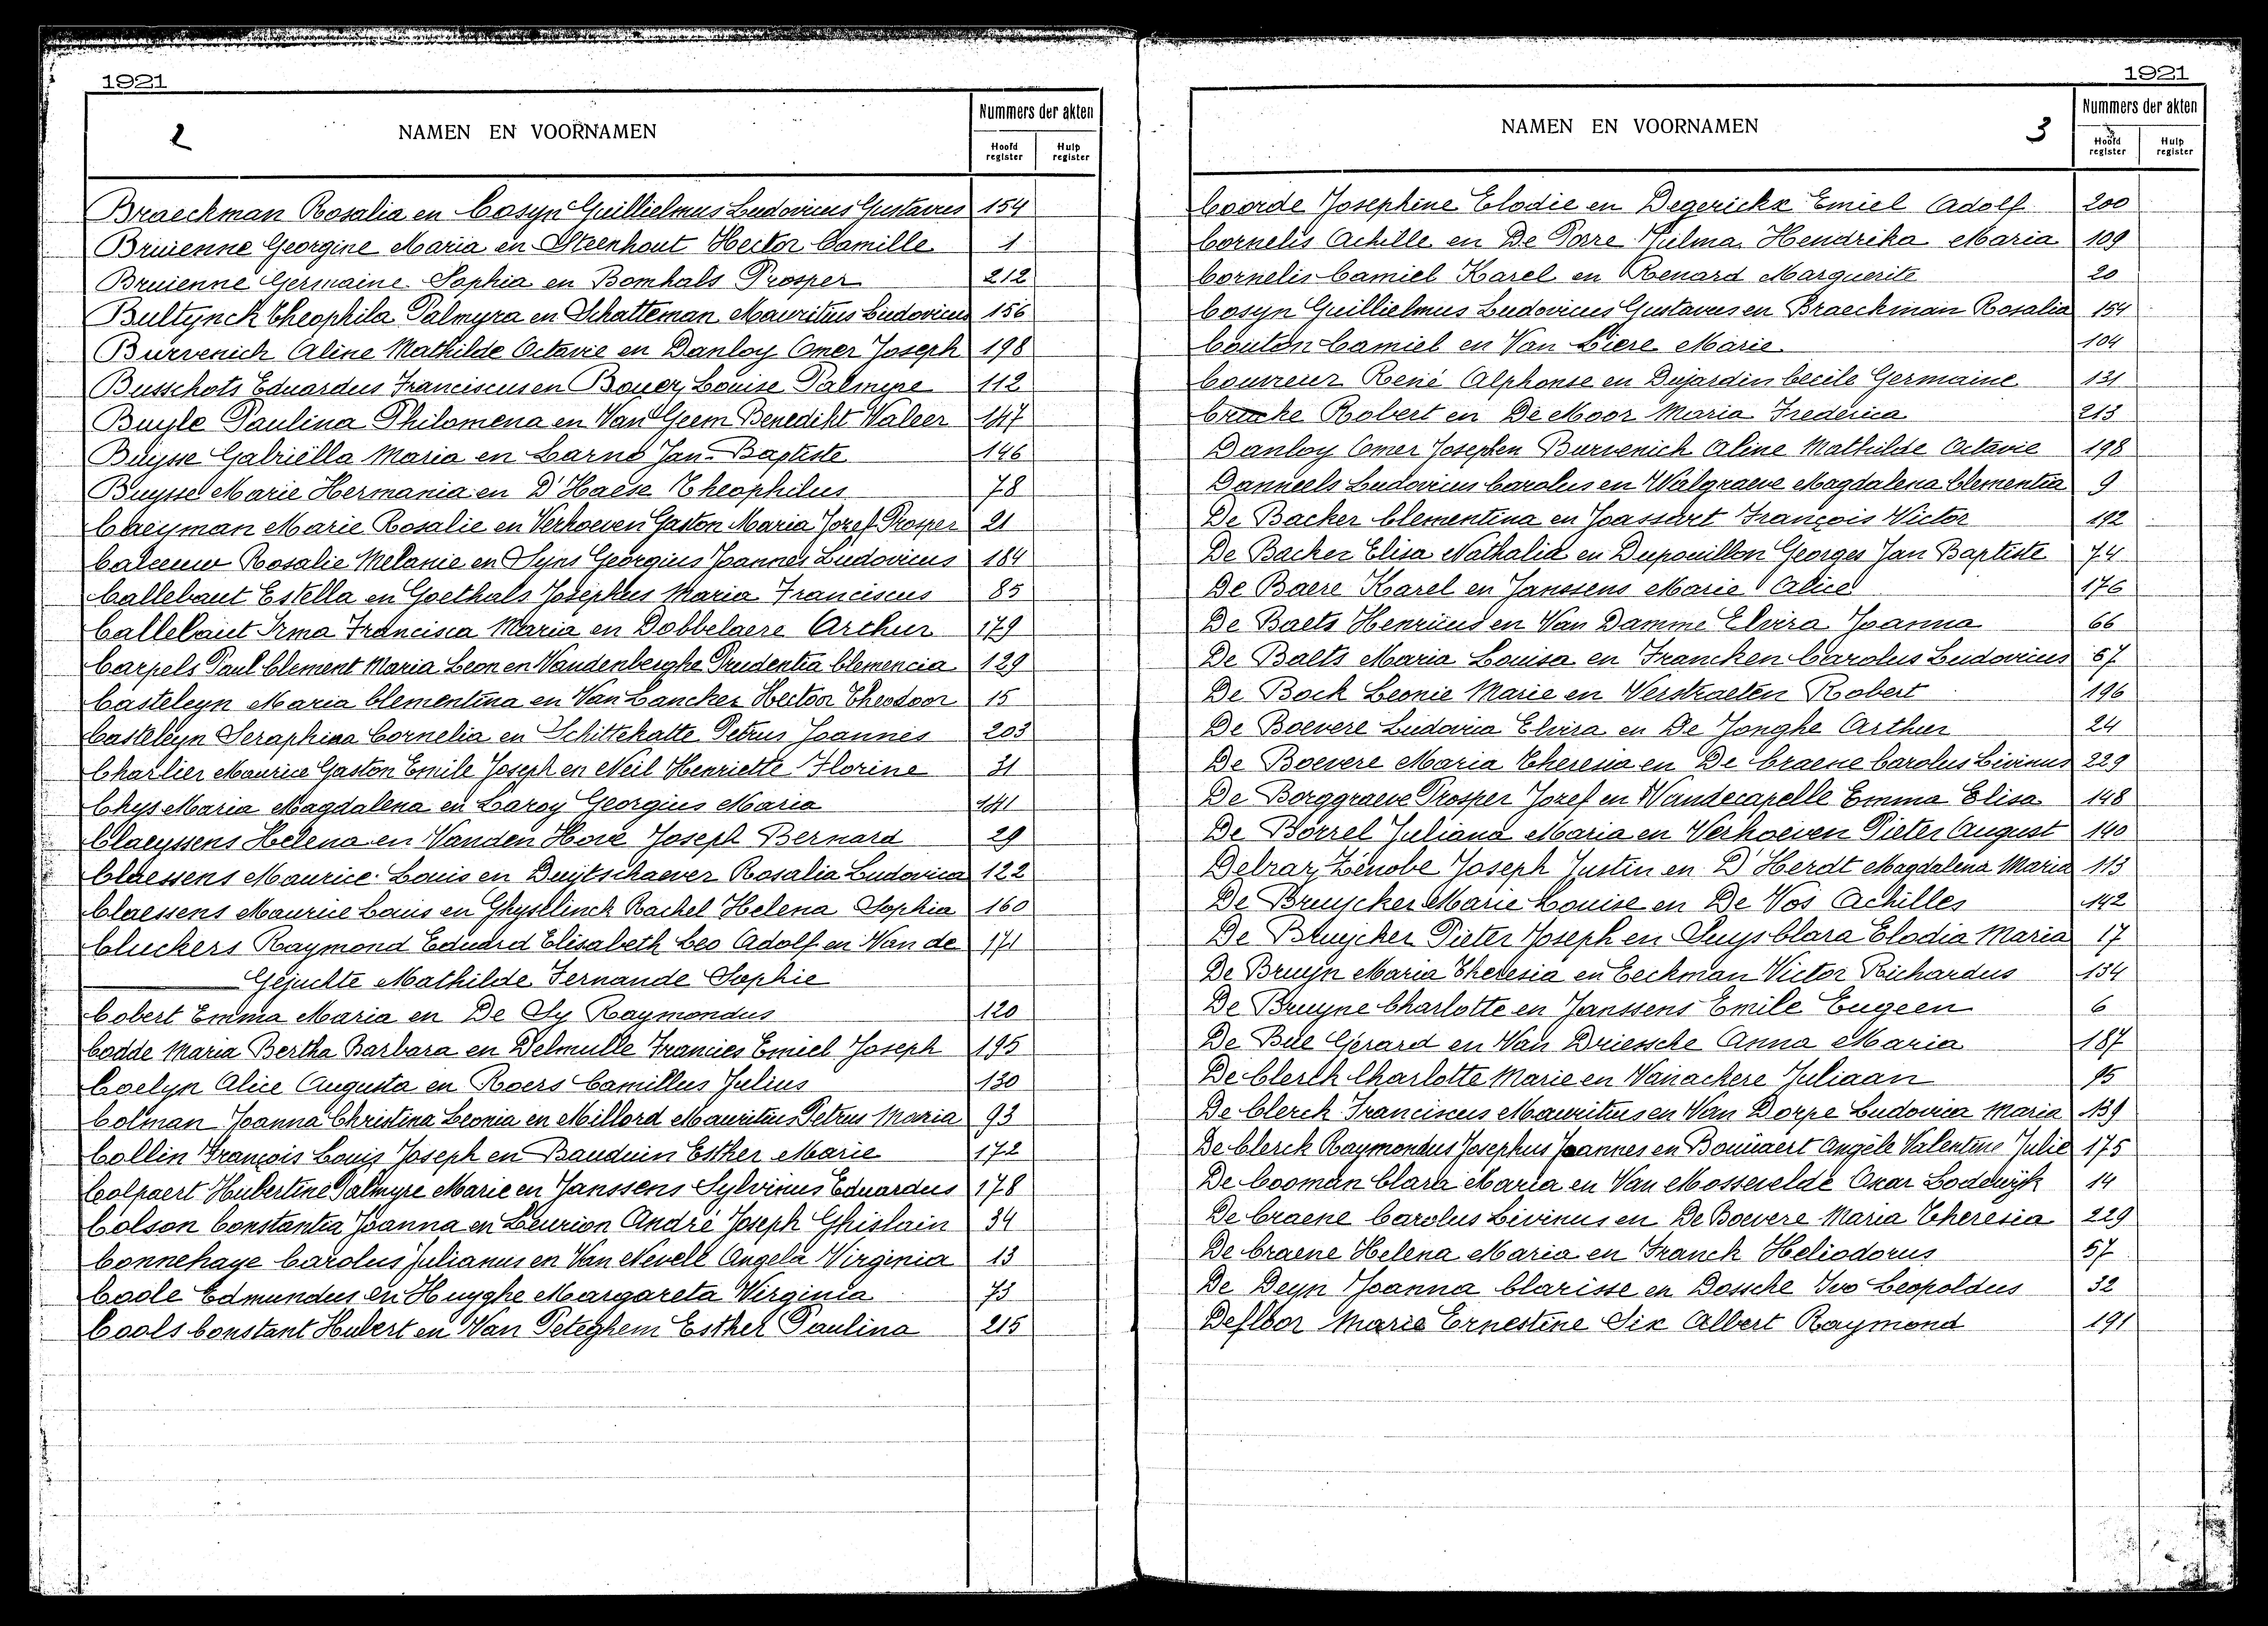 1921
2
NAMEN EN VOORNAMEN
Nummers der akten
Hoofd register
Hulp register
Braeckman Rosalia en Cosyn Guillielmus Ludovicus Gustavus 154
Bruienne Georgine Maria en Steenhout Hector Camille 1
Bruienne Germaine Sophia en Bomhals Prosper 212
Bultynck Theophila Palmyra en Schatteman Mauritius Ludovicus 156
Burvenich Aline Mathilde Octavie en Danloy Omer Joseph 198
Busschots Eduardus Franciscus en Bouer Louise Palmyre 112
Buyle Paulina Philomena en Van Geem Benedikt Walter 147
Buysse Gabriëlla Maria en Larno Jan-Baptiste 146
Buysse Marie Hermania en D'Haese Theophilus 78
Caeyman Marie Rosalie en Verhoeven Gaston Maria Jozef Prosper 21
Caleeuw Rosalie Melanie en Syns Georgius Joannes Ludovicus 184
Callebaut Estella en Goethals Josephus Maria Franciscus 85
Callebaut Irma Francisca Maria en Dobbelaere Arthur 179
Carpels Paul Clement Maria Leon en Vandenberghe Prudentia Clemencia 129
Casteleyn Maria Clementina en Van Lancker Hector Theodoor 15
Casteleyn Seraphina Cornelia en Schittekatte Petrus Joannes 203
Charlier Maurice Gaston Emile Joseph en Neil Henriette Florine 31
Chys Maria Magdalena en Laroy Georgius Maria 141
Claeyssens Helena en Vanden Hove Joseph Bernard 29
Claessens Maurice Louis en Duytschaever Rosalia Ludovica 122
Claessens Maurice Louis en Ghysélinck Rachel Helena Sophia 160
Cluckers Raymond Eduard Elisabeth Leo Adolf en Van de 171
Gejuchte Mathilde Fernande Sophie
Cobert Emma Maria en De Sy Raymondus 120
Codde Maria Bertha Barbara en Delmulle Francies Emiel Joseph 195
Coelyn Alice Augusta en Roers Camillus Julius 130
Colman Joanna Christina Leonia en Millord Mauritius Petrus Maria 93
Collin François Louis Joseph en Bauduin Esther Marie 172
Colpaert Hubertine Palmyre Marie en Janssens Sylvinus Eduardus 178
Colson Constantia Joanna en Leurion André Joseph Ghislain 34
Connehaye Carolus Julianus en Van Nevell Angela Virginia 13
Coole Edmundus en Huyghe Margareta Virginia 73
Cools Constant Hubert en Van Peteghem Esther Paulina 215
1921
NAMEN EN VOORNAMEN
3
Nummers der akten
Hoofd register
Hulp register
Coorde Josephine Elodie en Degerickx Emiel Adolf 200
Cornelis Achille en De Porre Julma Hendrika Maria 109
Cornelis Camiel Karel en Renard Marguerite 20
Cosyn Guillielmus Ludovicus Gustavus en Braeckman Rosalia 154
Couton Camiel en Van Liere Marie 104
Couvreur René Alphonse en Dujardin Cecile Germaine 131
Robert en De Moor Maria Frederica 213
Danloy Omer Joseph en Burvenich Aline Mathilde Octavie 198
Danneels Ludovicus Carolus en Walgraeve Magdalena Clementia 9
De Backer Clementina en Joassart François Victor 192
De Backer Elisa Nathalia en Dupouillon Georges Jan Baptiste 74
De Baere Karel en Janssens Marie Alice 176
De Baets Henricus en Van Damme Elvira Joanna 66
De Baets Maria Louisa en Francken Carolus Ludovicus 67
De Bock Leonie Marie en Verstraeten Robert 196
De Boevere Ludovica Elvira en De Jonghe Arthur 24
De Boevere Maria Theresia en De Craene Carolus Livinus 229
De Borggraeve Prosper Jozef en Vandecapelle Emma Elisa 148
De Borrel Juliana Maria en Verhoeven Pieter August 140
Debraz Zénobe Joseph Justin en D'Herdt Magdalena Maria 113
De Bruycker Marie Louise en De Vos Achilles 142
De Bruycker Pieter Joseph en Suys Clara Elodia Maria 17
De Bruyn Maria Theresia en Eeckman Victor Richardus 134
De Bruyne Charlotte en Janssens Emile Eugeen 6
De Bue Gérard en Van Driessche Anna Maria 187
De Clerck Charlotte Marie en Vanackere Juliaan 95
De Clerck Franciscus Mauritius en Van Dorpe Ludovica Maria 139
De Clerck Raymondus Josephus Joannes en Bouüaert Angèle Valentine Julie 175
De Cooman Clara Maria en Van Mossevelde Oscar Lodewyk 14
De Craene Carolus Livinus en De Boevere Maria Theresia 229
De Craene Helena Maria en Franck Heliodorus 57
De Deyn Joanna Clarisse en Dossche Ivo Leopoldus 32
Defloor Marie Ernestine Six Albert Raymond 191